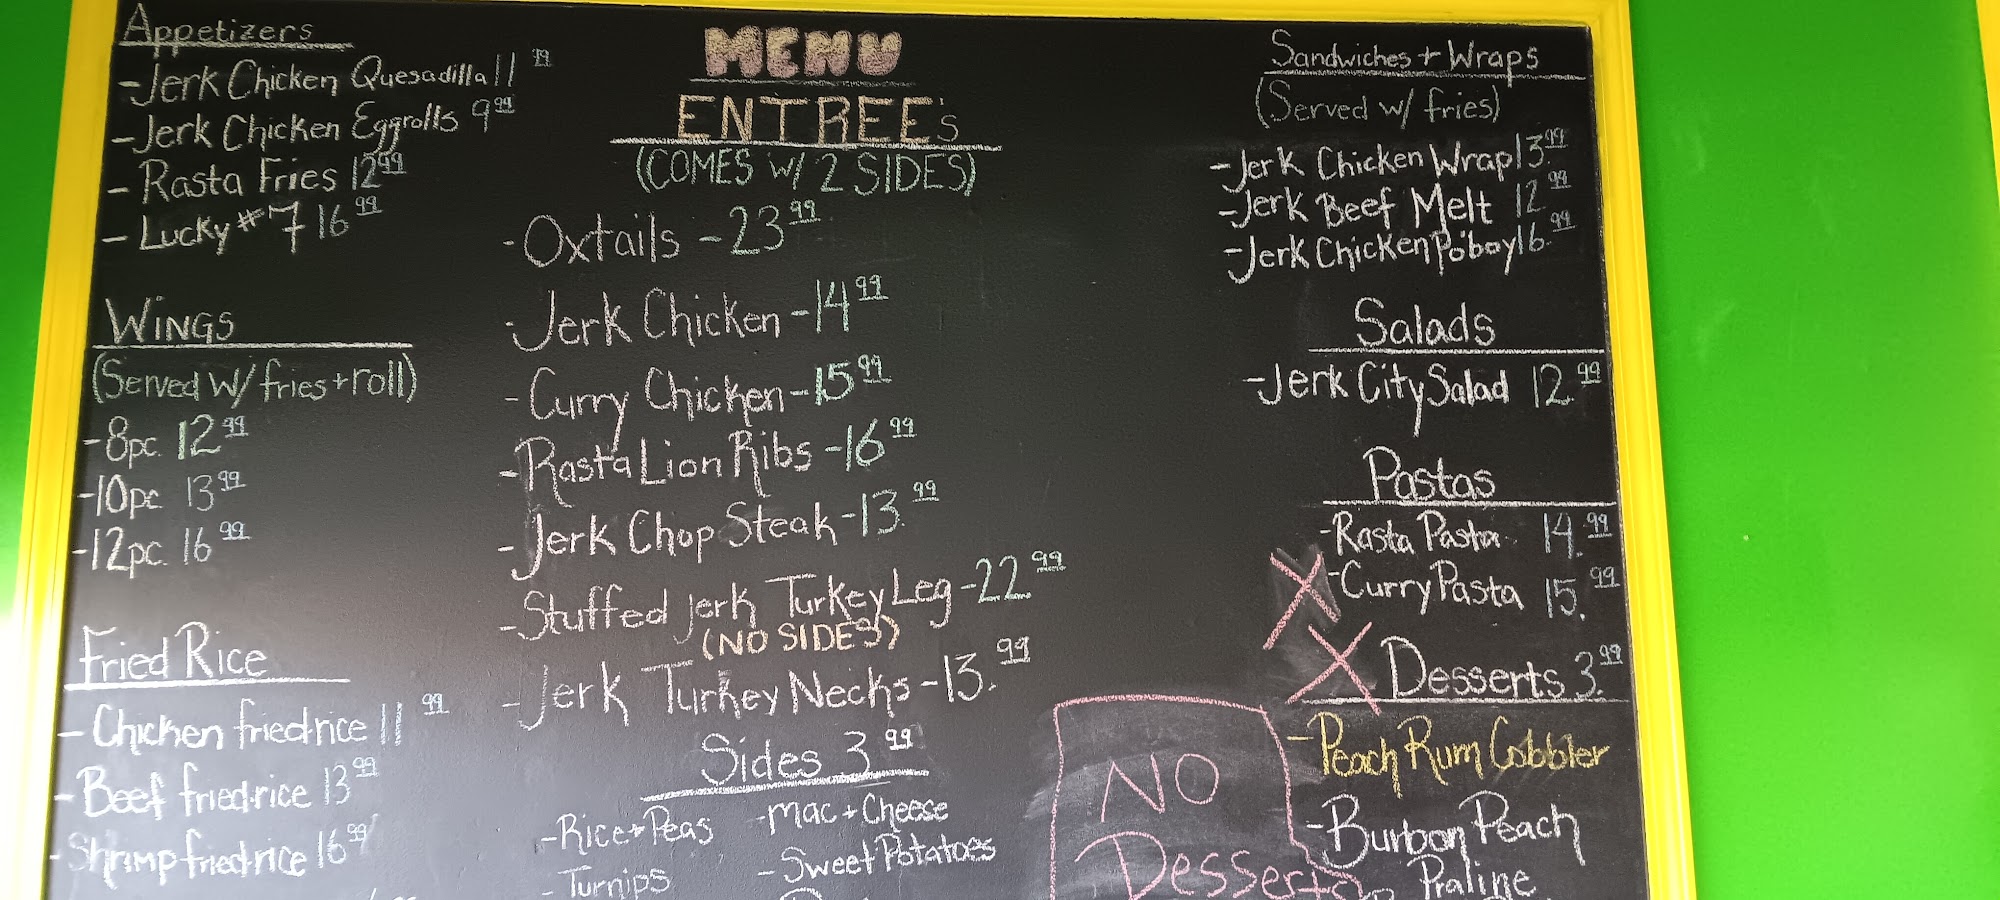 Appetizers
-Jerk Chicken Quesadilla 11 99
-Jerk Chicken Eggrolls 9 99
-Rasta Fries 12 99
-Lucky #7 16 99
Wings
(Served w/ fries + roll)
-8pc. 12 99
-10pc. 13 99
-12pc. 16 99
Fried Rice
-Chicken friedrice 11 99
-Beef friedrice 13 99
-Shrimp friedrice 16 99
MENU
ENTREE's
(COMES w/ 2 SIDES)
-Oxtails -23 99
-Jerk Chicken -14 99
-Curry Chicken -15 99
-Rasta Lion Ribs -16 99
-Jerk Chop Steak -13. 99
-Stuffed Jerk Turkey Leg -22 99
(NO SIDES)
-Jerk Turkey Necks -13. 99
Sides 3 99
-Rice + Peas
-Turnips
-Mac + Cheese
-Sweet Potatoes
Sandwiches + Wraps
(Served w/ fries)
-Jerk Chicken Wrap 13. 99
-Jerk Beef Melt 12 99
-Jerk Chicken Po'boy 16. 99
Salads
-Jerk City Salad 12. 99
Pastas
-Rasta Pasta 14. 99
X -Curry Pasta 15. 99
X Desserts 3. 99
-Peach Rum Cobbler
-Burbon Peach
Praline
NO
Desserts